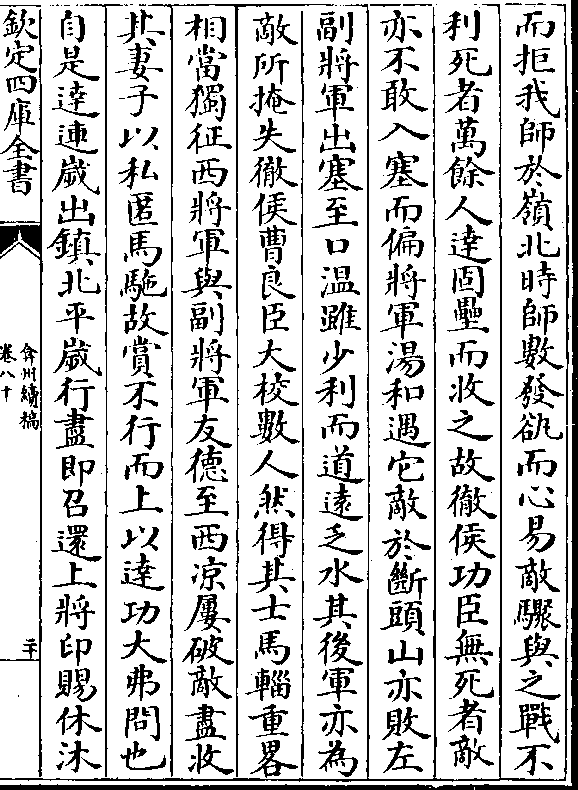 而拒我師於嶺北時師數發劔而心易敵驟與之戰不
利死者萬餘人逹固壘而收之故徹侯功臣無死者敵
亦不敢入塞而偏將軍湯和遇它敵於斷頭山亦敗左
副將軍出塞至口温雖少利而道遠乏水其後軍亦為
敵所掩失徹侯曹良臣大校數人然得其士馬輜重畧
相當獨征西將軍與副將軍友德至西凉屢破敵盡收
其妻子以私匿馬駞故賞不行而上以逹功大弗問也
自是逹連嵗出鎮北平嵗行盡即召還上將印賜休沐
欽定四庫全書
弇州續稿
卷八十
二十